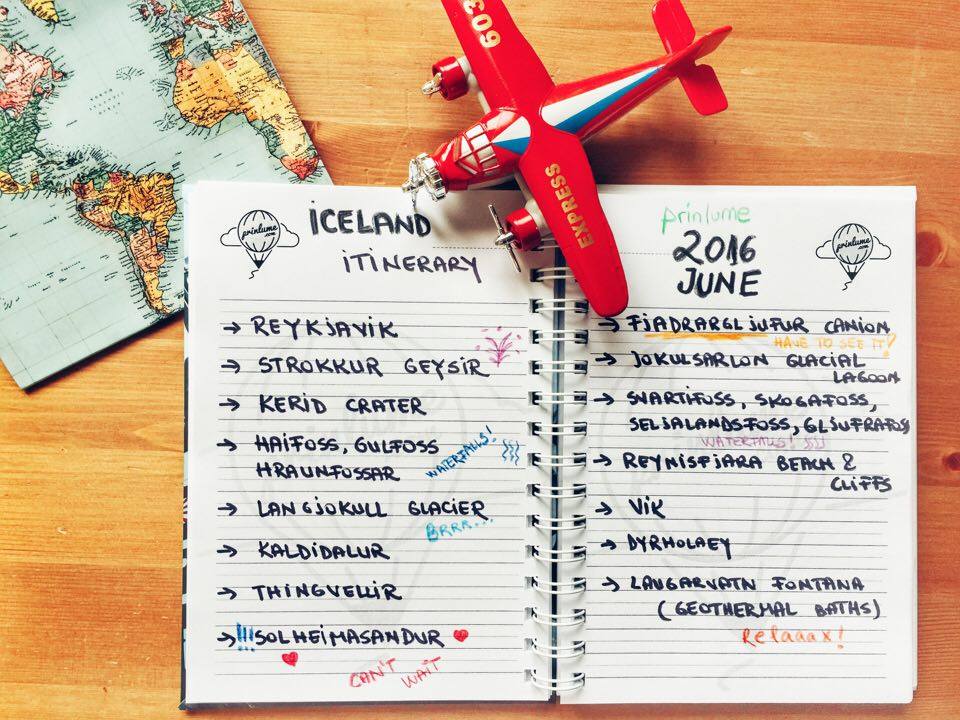 603
EXPRESS
printume
.com
ICELAND
ITINERARY
→ REYKJAVIK
→ STROKKUR GEYSIR
→ KERID CRATER
→ HAIFOSS, GULFOSS
HRAUNFUSSAR
WATERFALLS!
→ LANGJOKULL GLACIER
BRRR...
→ KALDIDALUR
→ THINGVELLIR
→ !!! SOLHEIMASANDUR
CAN'T WAIT
prinlume
2016
JUNE
prinlume
.com
→ FJADRARGLJUFUR CANION
HAVE TO SEE IT!
→ JOKULSARLON GLACIAL
LAGOON
→ SVARTIFOSS, SKOGAFOSS,
SELJALANDSFOSS, GLJUFRAFOSS
WATERFALLS!
→ REYNISFJARA BEACH &
CLIFFS
→ VIK
→ DYRHOLAEY
→ LAUGARVATN FONTANA
(GEOTHERMAL BATHS)
Relaaax!